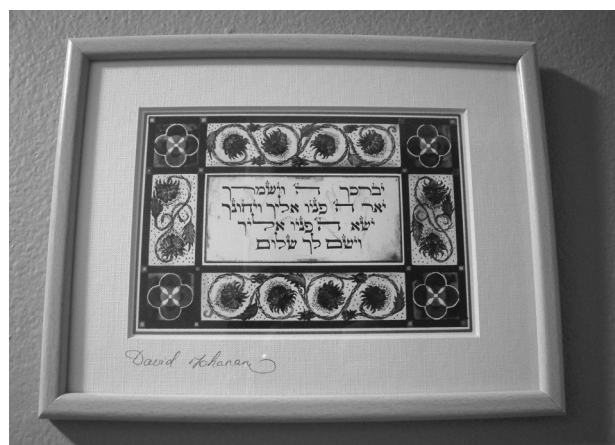 יברכך ה' וישמרך
יאר ה' פניו אליך ויחונך
ישא ה' פניו אליך
וישם לך שלום
David